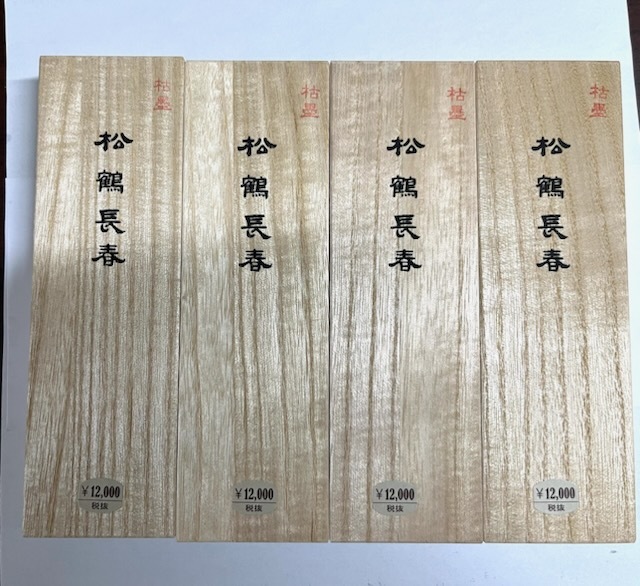 枯墨
松鶴長春
¥12,000
税抜
枯墨
松鶴長春
¥12,000
税抜
枯墨
松鶴長春
¥12,000
税抜
枯墨
松鶴長春
¥12,000
税抜